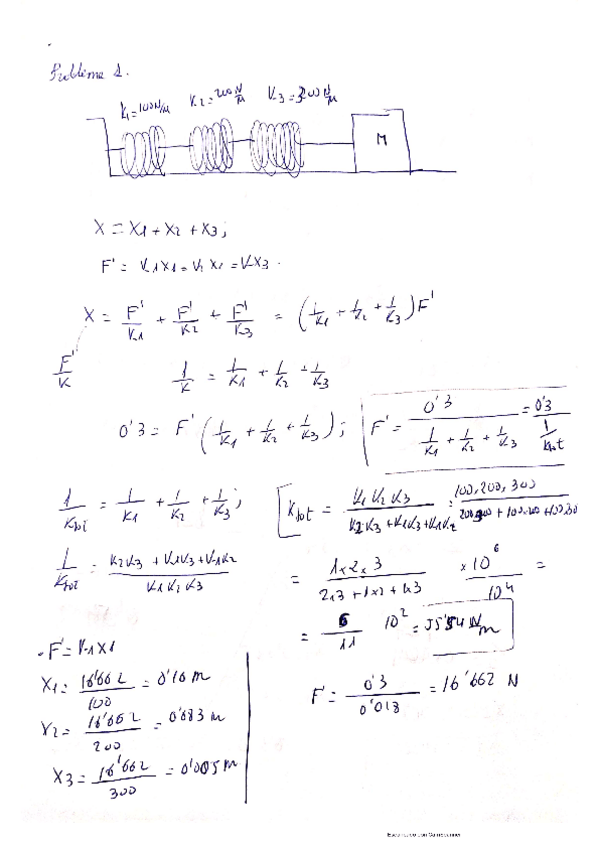 Problema 1.
K1=100N/m K2=200N/m K3=300N/m
M
X = X1 + X2 + X3 ;
F' = K1X1 = K2 X2 = KX3 .
X = F'/K1 + F'/K2 + F'/K3 = (1/K1 + 1/K2 + 1/K3) F'
F'/K
1/K = 1/K1 + 1/K2 + 1/K3
0'3 = F' (1/K1 + 1/K2 + 1/K3) ; F' = 0'3 / (1/K1 + 1/K2 + 1/K3) = 0'3 / (1/Ktot)
1/Ktot = 1/K1 + 1/K2 + 1/K3 ; Ktot = K1 K2 K3 / (K2 K3 + K1 K3 + K1 K2) = 100.200.300
1/Ktot = (K2K3 + K1K3 + K1K2) / (K1 K2 K3) = 1x2x3 / (2x3 + 1x2 + 1x3) x 10^6 / 10^4 =
= 6/11 10^2 = 55'54 N/m
- F' = K1X1
X1 = 16'662 / 100 = 0'16 m F' = 0'3 / 0'018 = 16'662 N
X2 = 16'662 / 200 = 0'083 m
X3 = 16'662 / 300 = 0'005 m
Escaneado con CamScanner